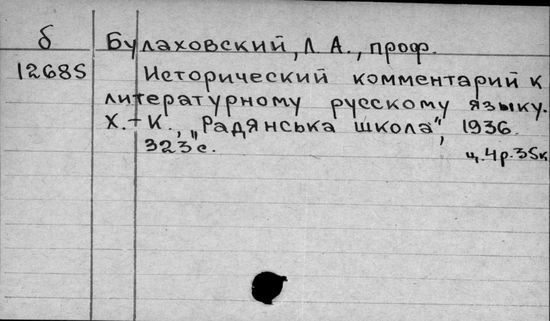 б Булаховский, Л А., проф.
12685 Исторический комментарий к
литературному русскому языку.
Х.-К., „Радянська школа", 1936.
323 с. ц.4р.35к